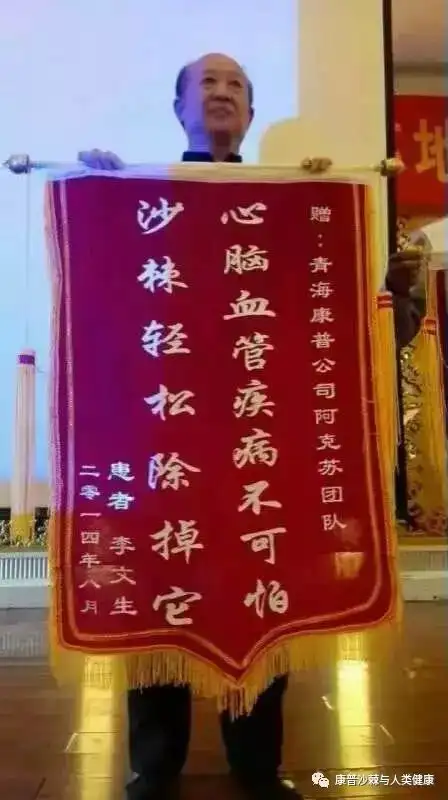 赠:青海康普公司阿克苏团队
心脑血管疾病不可怕
沙棘轻松除掉它
患者 李文生
二零一四年八月
地
康普沙棘与人类健康